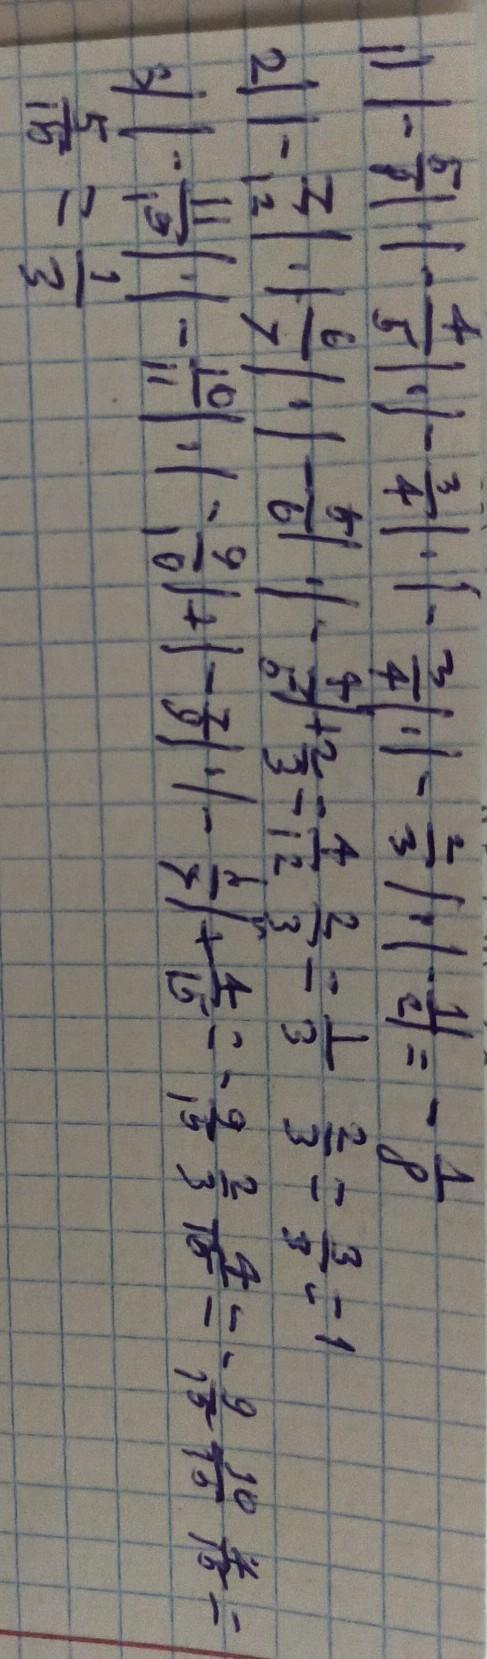 1) (-5/8)·(-4/5)·(-3/4)·(-3/4)·(-2/3)·(-1/2) = -1/8
2) (-7/12)·(6/7)·(-5/6)·(-4/5)+2/3 = 4/12 2/3 = 1/3 2/3 = 3/3 = 1
3) (-11/15)·(-10/11)·(-9/10)+(-7/9)·(-6/7)+4/15 = -9/15 2/3 4/15 = -9/15 10/15 4/15 =
5/15 = 1/3